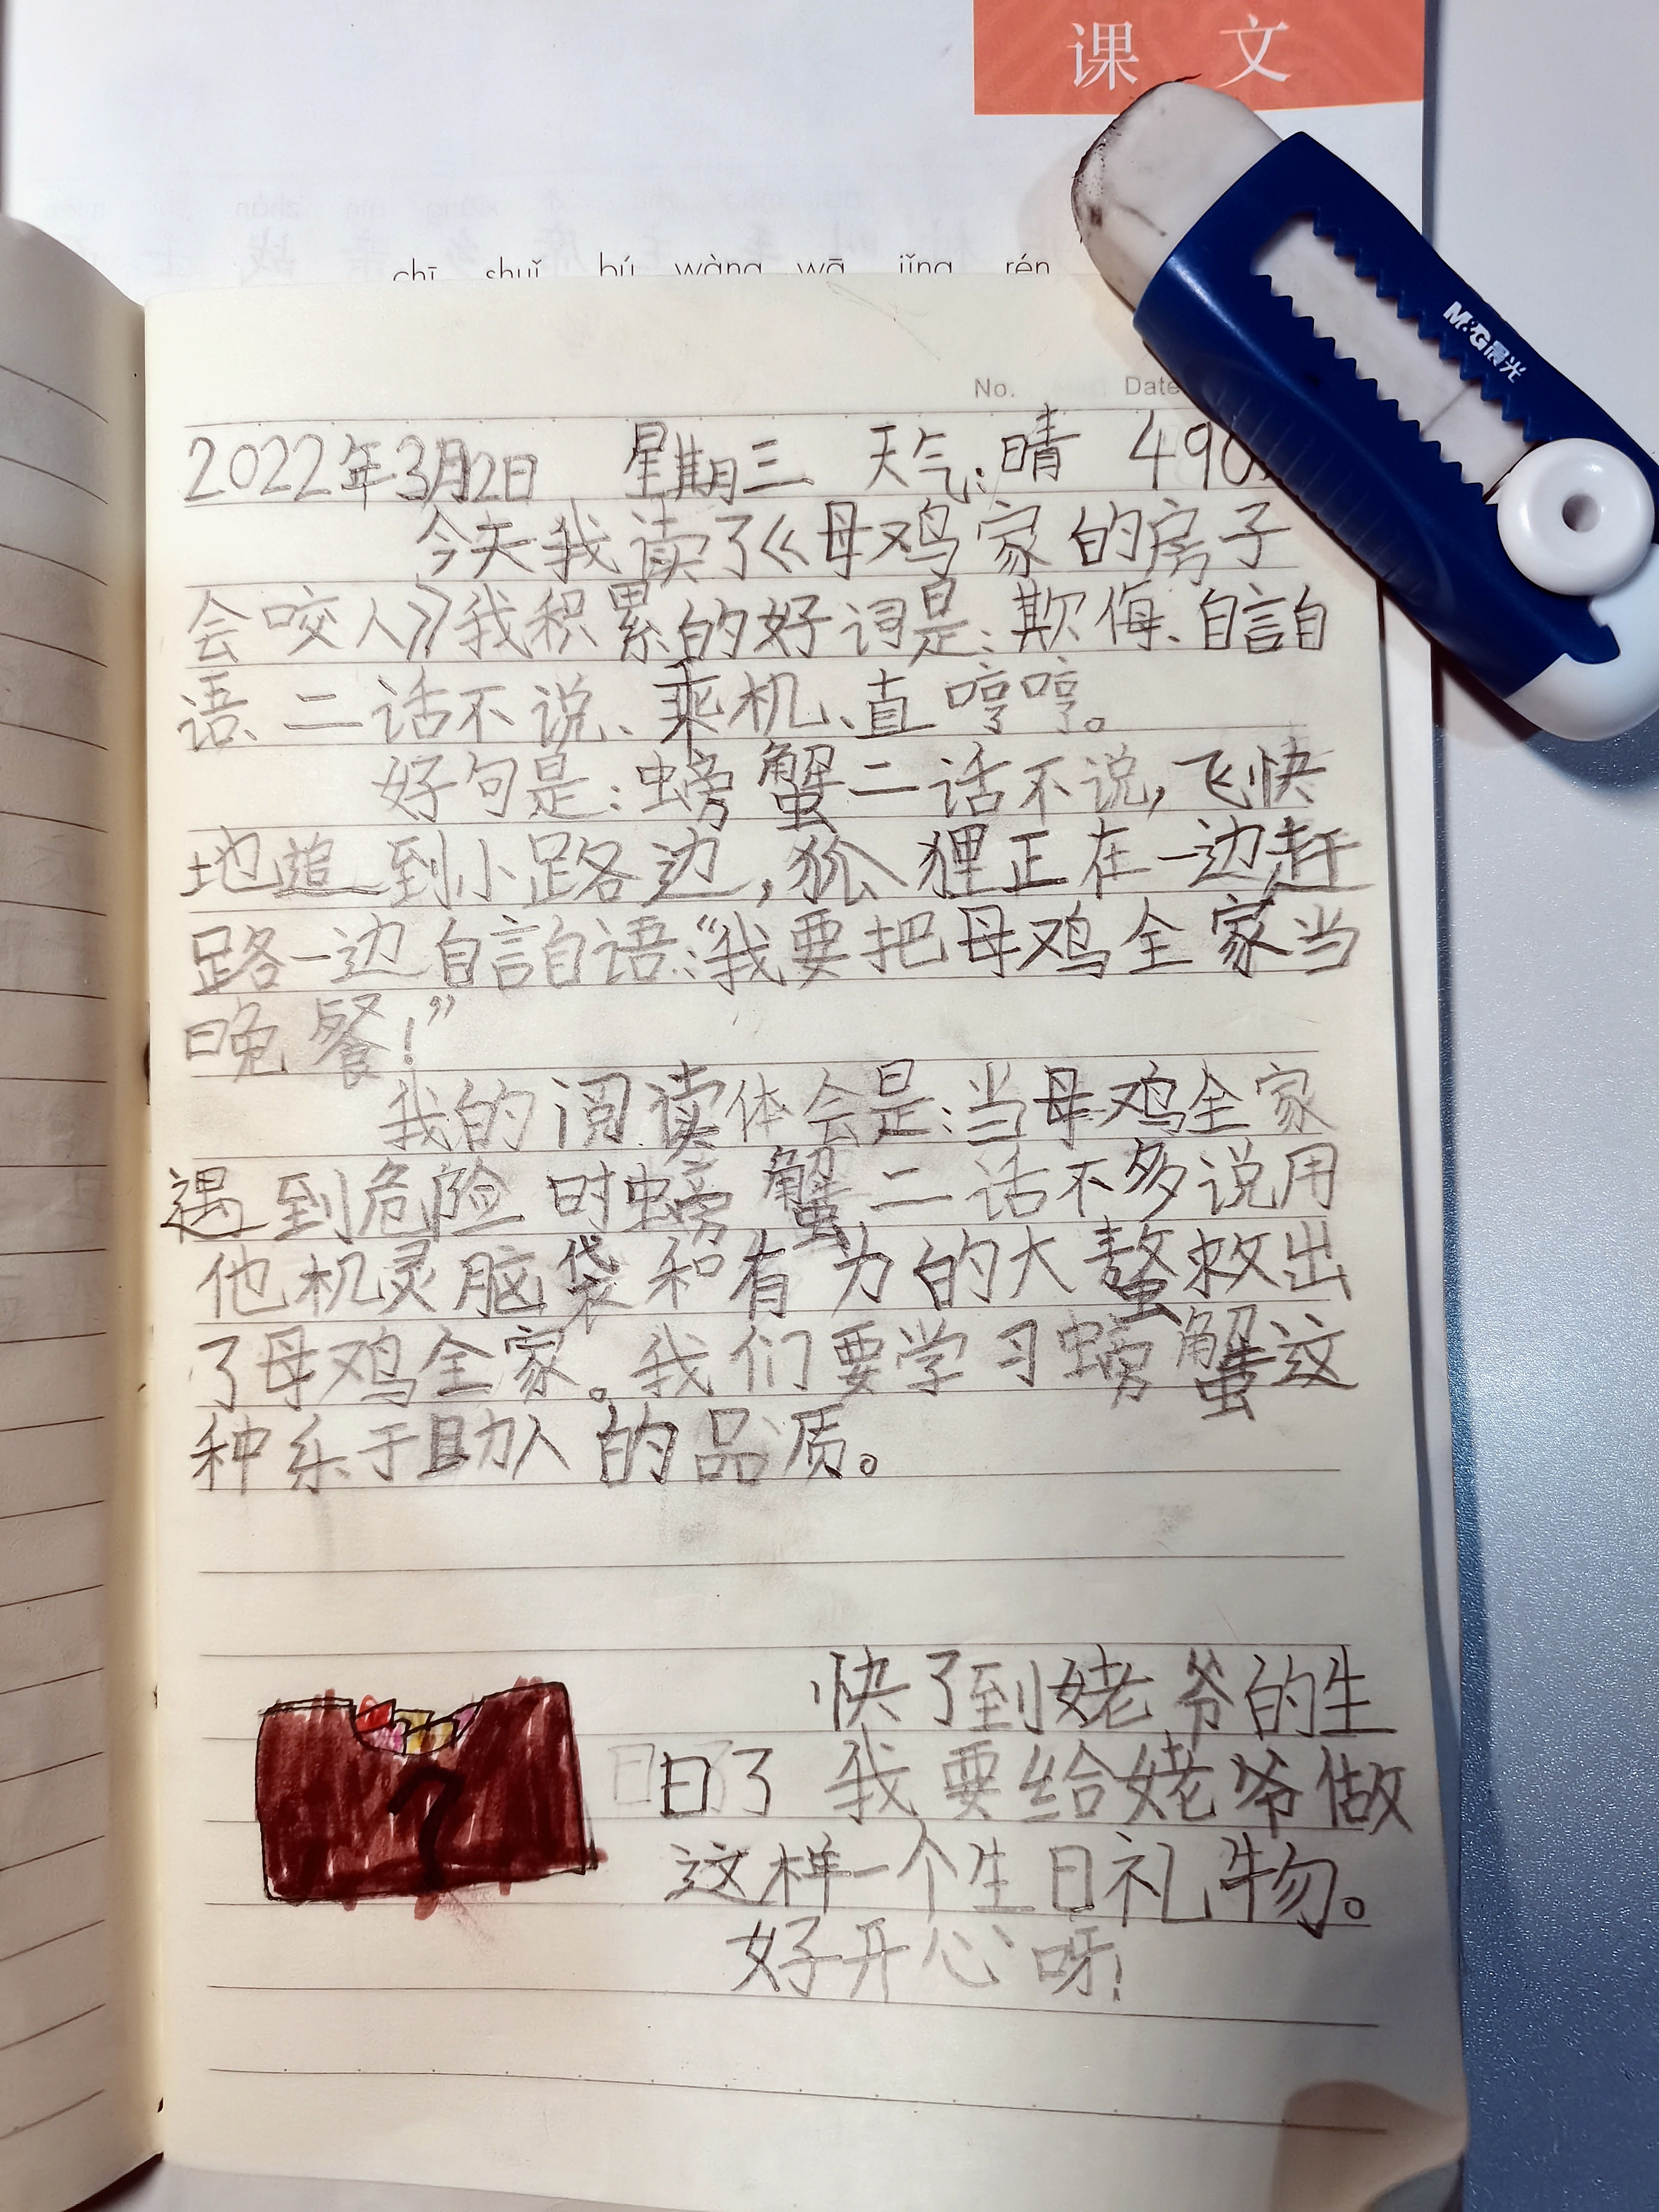 课 文
chī shuǐ bú wàng wā jǐng rén
M&G晨光
No. Date
2022年3月2日 星期三 天气:晴 490
今天我读了《母鸡家的房子
会咬人》我积累的好词是:欺侮、自言自
语、二话不说、乘机、直哼哼。
好句是:螃蟹二话不说,飞快
地追到小路边,狐狸正在一边赶
路一边自言自语:“我要把母鸡全家当
晚餐!”
我的阅读体会是:当母鸡全家
遇到危险时螃蟹二话不多说用
他机灵脑袋和有力的大螯救出
了母鸡全家。我们要学习螃蟹这
种乐于助人的品质。
快了到姥爷的生
日了 我要给姥爷做
这样一个生日礼物。
好开心呀!
?